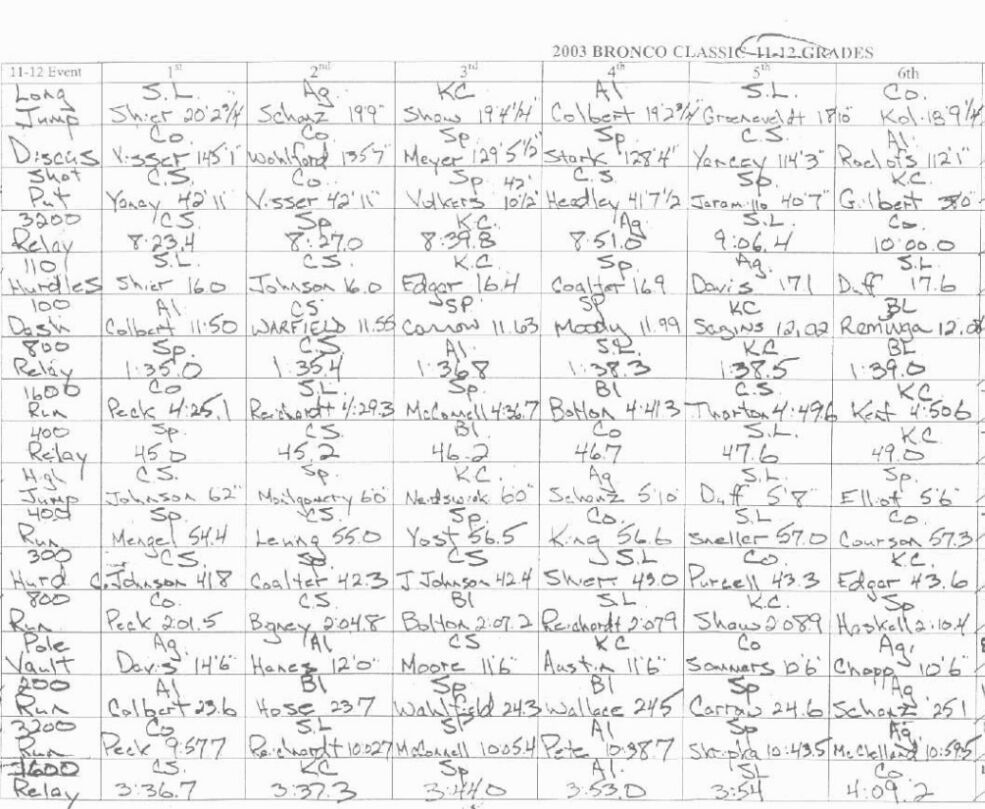 2003 BRONCO CLASSIC 11-12 GRADES
11-12 Event 1st 2nd 3rd 4th 5th 6th
Long S.L. Ag KC Al S.L. Co.
Jump Shier 20'2¾ Schanz 19'9" Show 19'4¼" Colbert 19'2¾ Groeneveldt 18'10" Kol 18'9¼
Co Co Sp Sp C.S. Al
Discus Visser 145'1" Wohlford 135'7" Meyer 129'5½" Stark 128'4" Yancey 114'3" Roelofs 112'1"
Shot C.S. Co. Sp 42' C.S. Sp. K.C.
Put Yancy 42'11" Visser 42'11" Volkers 10½" Headley 41'7½ Jaramillo 40'7" Gilbert
3200 C.S. Sp K.C. Ag S.L. Co
Relay 8:23.4 8:27.0 8:39.8 8:51.0 9:06.4 10:00.0
110 S.L. C.S. K.C. Sp. Ag. S.L.
Hurdles Shier 16.0 Johnson 16.0 Edgar 16.4 Coalter 16.9 Davis 17.1 Duff 17.6
100 Al CS SP. SP KC BL
Dash Colbert 11.50 WARFIELD 11.55 Carrow 11.63 Moody 11.99 Scgins 12.02 Reminga
800 Sp. C.S Al S.L. K.C BL
Relay 1:35.0 1:35.4 1:36.8 1:38.3 1:38.5 1:39.0
1600 Co SL Sp. Bl C.S. KC
Run Peck 4:25.1 Reichardt 4:29.3 McConnell 4:36.7 Bolton 4:41.3 Thorton 4:49.6 Kent 4:50.6
400 Sp. C.S Bl Co S.L. K.C.
Relay 45.0 45.2 46.2 46.7 47.6 49.0
High C.S. Sp. K.C. Ag S.L Sp.
Jump Johnson 6'2" Montgomery 6'0" 6'0" Schanz 5'10" Duff 5'8" Elliot 5'6"
400 Sp CS. Sp Co. S.L Co.
Run Mengel 54.4 Leung 55.0 Yost 56.5 King 56.6 Sneller 57.0 Courson 57.3
300 CS Sp CS S.L. Co K.C.
Hurd C. Johnson 41.8 Coalter 42.3 J Johnson 42.4 Shier 43.0 Purcell 43.3 Edgar 43.6
800 Co. C.S Bl S.L K.C. Sp
Run Peck 2:01.5 Boney 2:04.8 Bolton 2:07.2 Reichardt 2:07.9 Show 2:08.9 Haskell 2:10.4
Pole Ag. Al CS KC Co Ag.
Vault Davis 14'6" Hanes 12'0" Moore 11'6" Austin 11'6" Sommers 10'6" Chapp 10'6"
200 Al Bl Sp Bl Sp Ag
Run Colbert 23.6 Hose 23.7 Wahlfield 24.3 Wallace 24.5 Carrow 24.6 Schanz 25.1
3200 Co S.L SP Al Sp Ag
Run Peck 9:57.7 Reichardt 10:02.7 McConnell 10:05.4 Pete 10:38.7 Skripka 10:43.5 McClelland 10:59.5
1600 CS. KC Sp Al. SL Co.
Relay 3:36.7 3:37.3 3:44.0 3:53.0 3:54 4:09.2